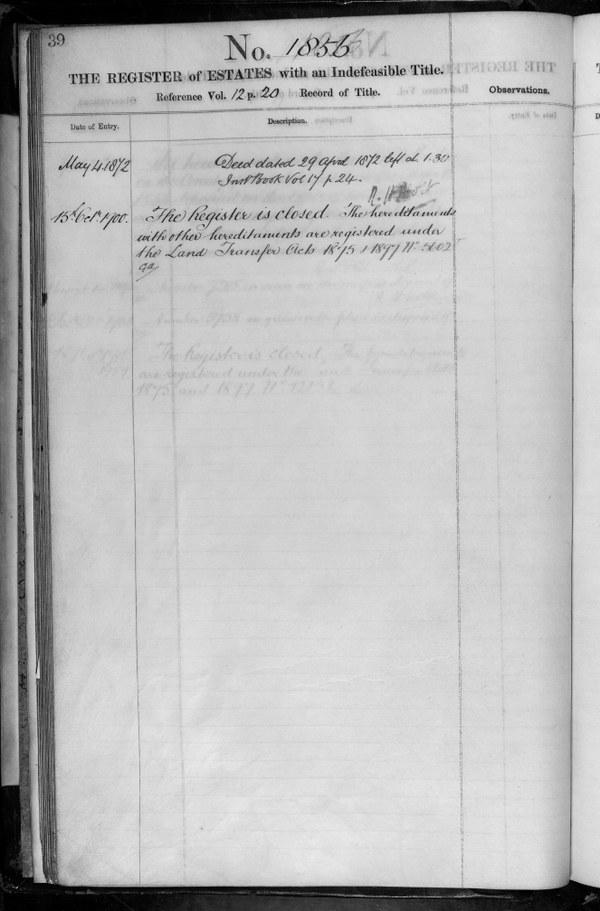 39
No. 1856
THE REGISTER of ESTATES with an Indefeasible Title.
Reference Vol. 12 p. 20 Record of Title.
Observations.
Date of Entry.
Description.
May 4. 1872
Deed dated 29 April 1872 left at 1.30
Inst Book Vol 17 p 24.
13th Octr 1900.
The Register is closed. The hereditaments
with other hereditaments are registered under
the Land Transfer Acts 1875 & 1897 No